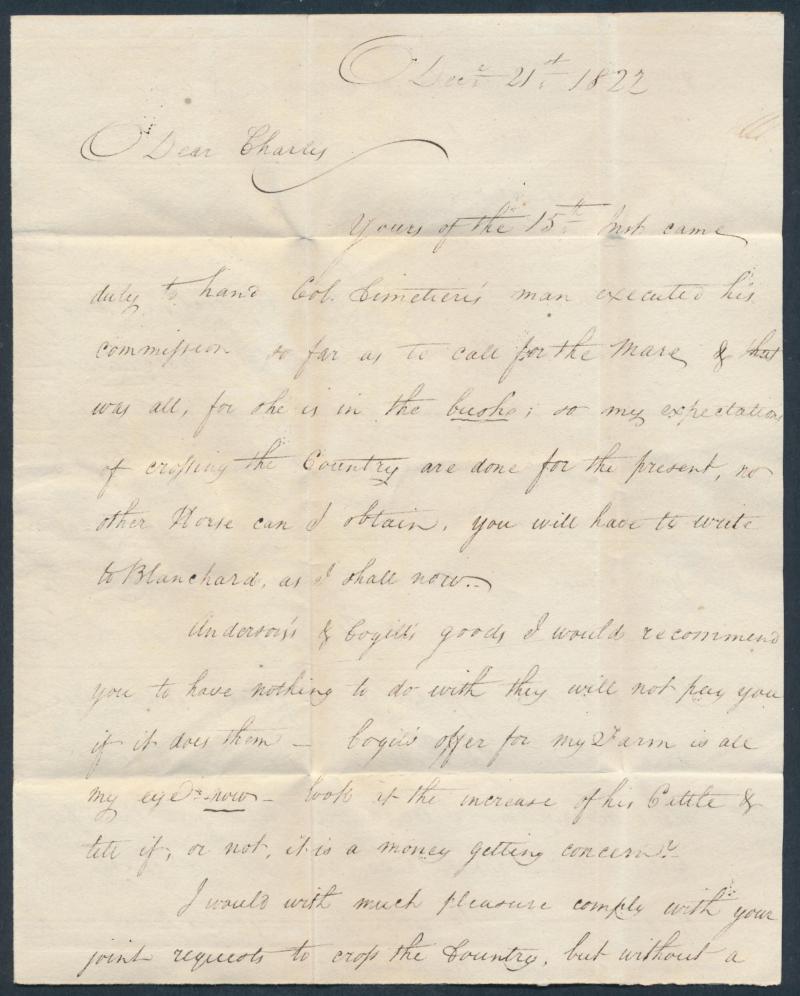 Decr. 21st. 1822
Dear Charles
Yours of the 15th. Inst came
duly to hand Col. Cimetiere's man executed his
commission so far as to call for the Mare, & that
was all, for she is in the bush; so my expectations
of crossing the Country are done for the present, no
other Horse can I obtain, you will have to write
to Blanchard, as I shall now.
Anderson's & Cogill's goods I would recommend
you to have nothing to do with they will not pay you
if it does them — Cogill's offer for my Farm is all
my eye now — look at the increase of his Cattle &
tell if, or not, it is a money getting concern?
I would with much pleasure comply with your
joint requests to cross the Country, but without a